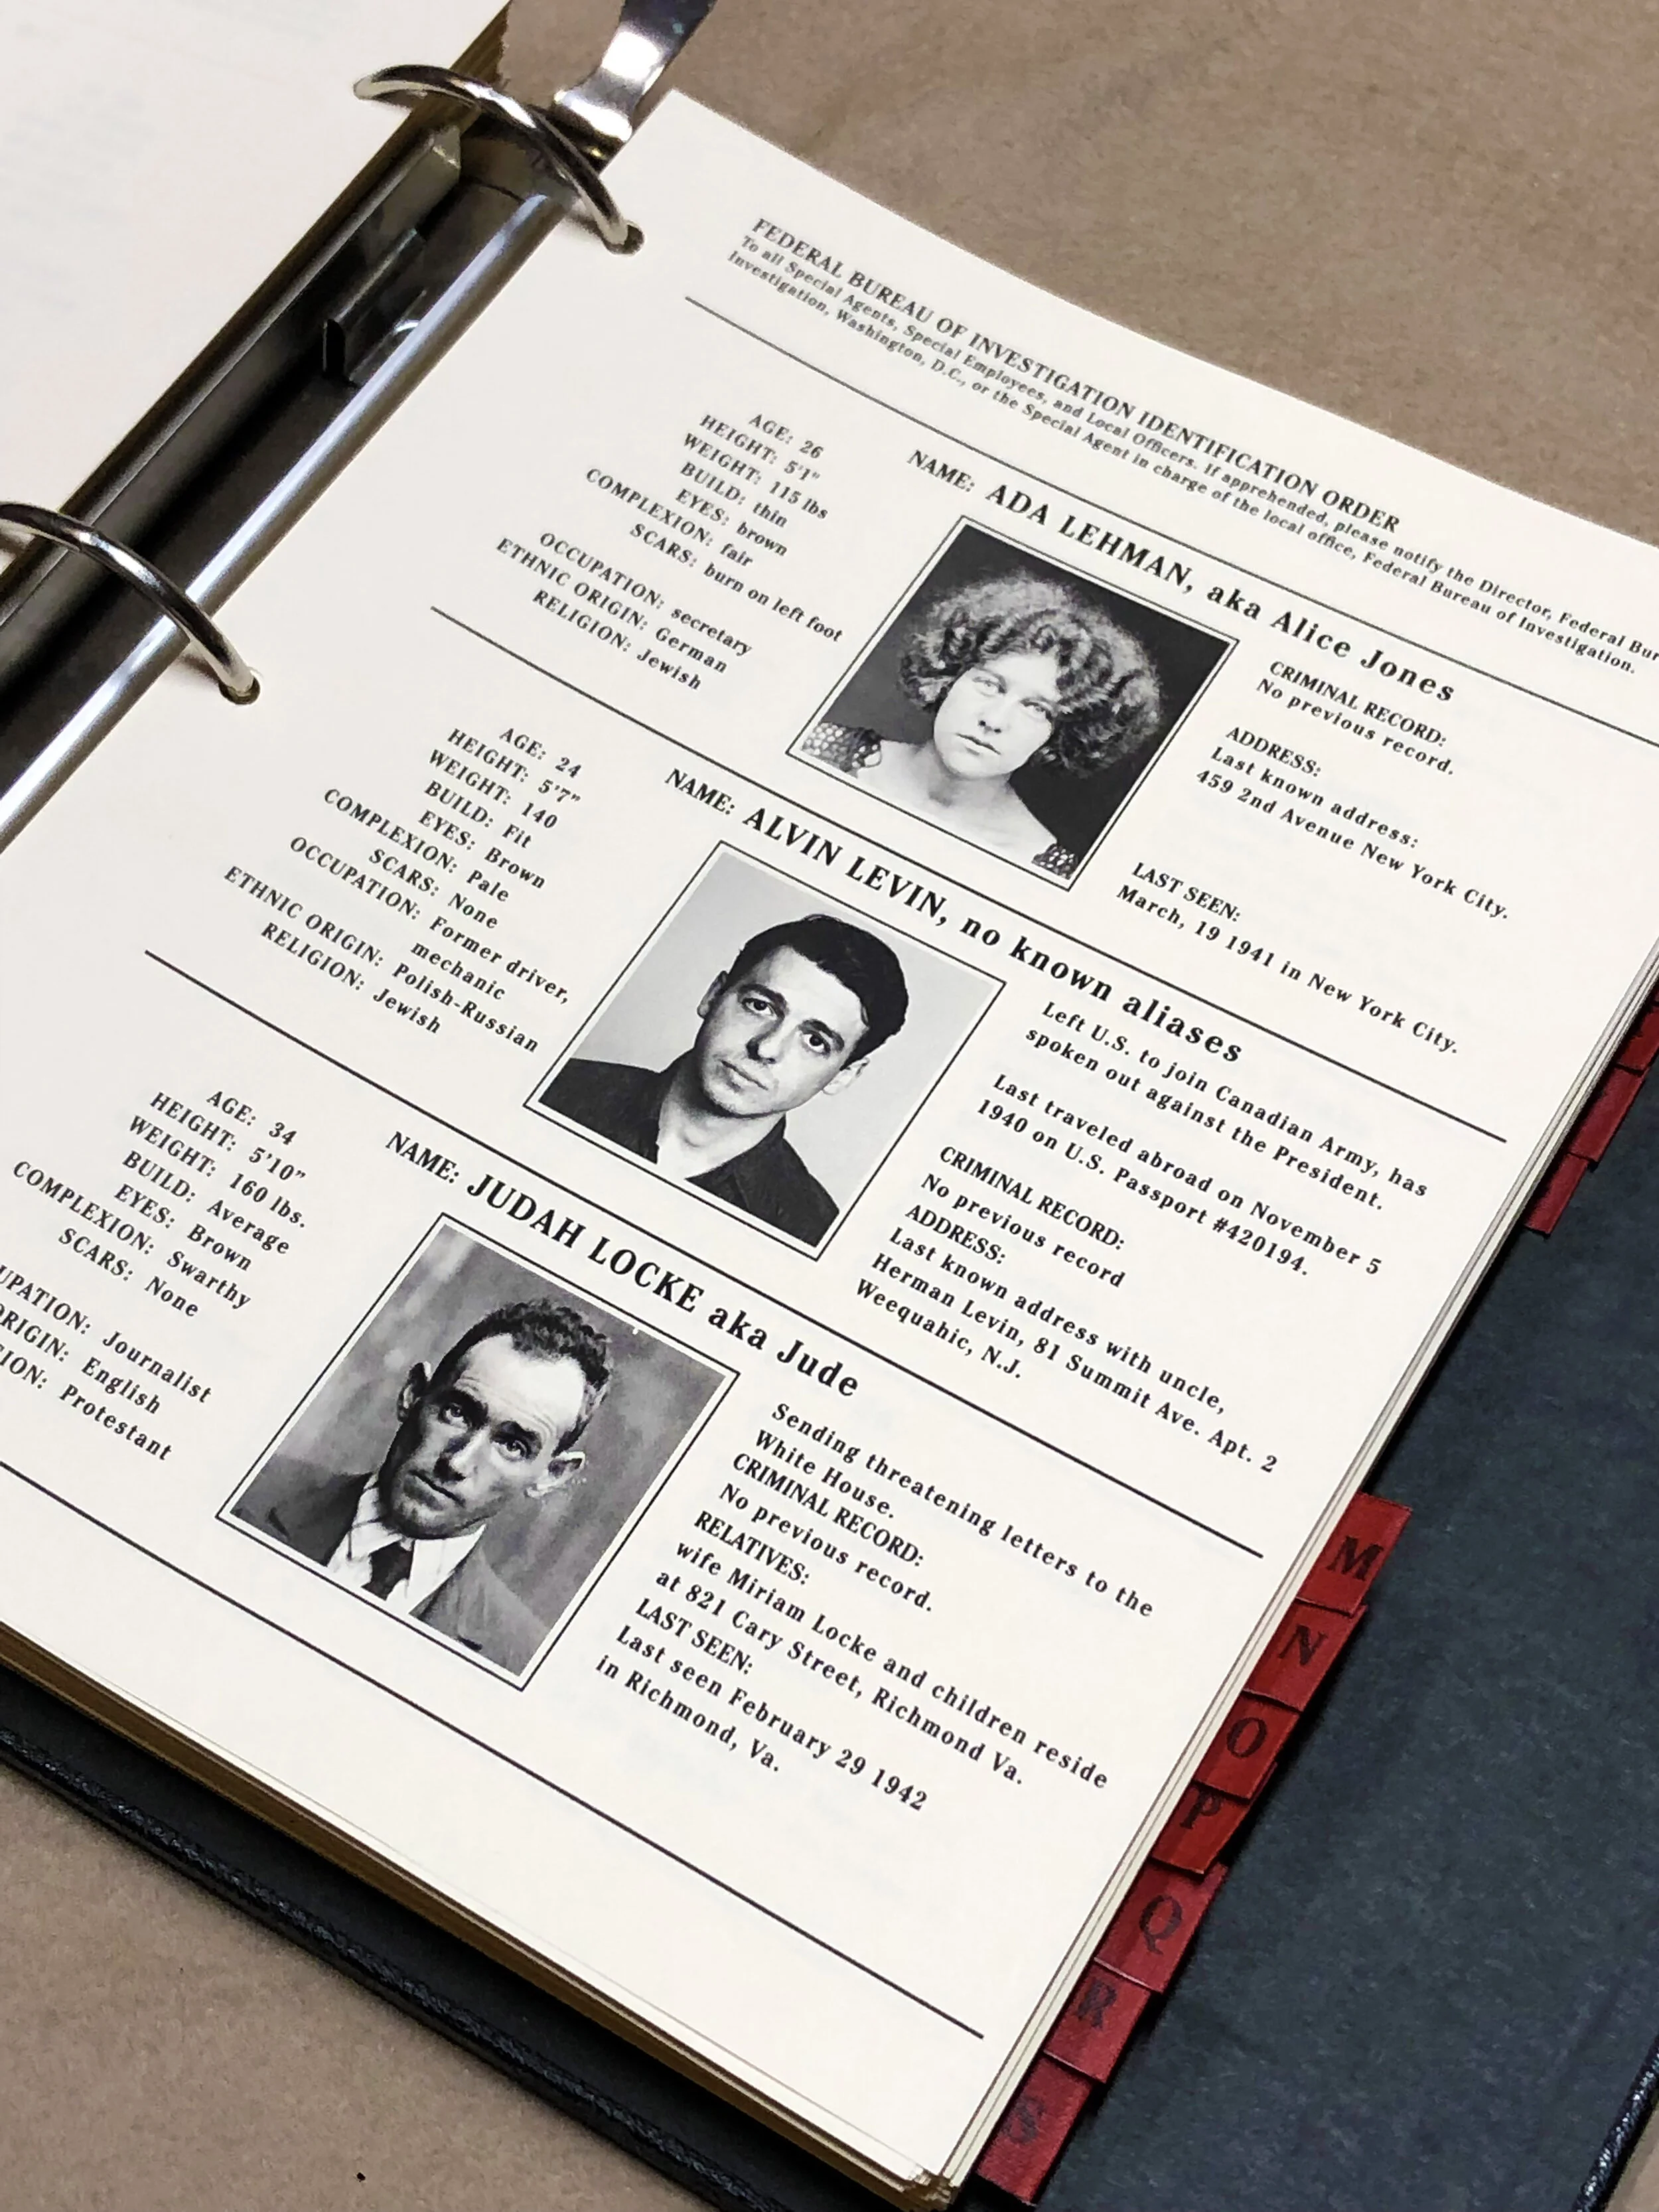 FEDERAL BUREAU OF INVESTIGATION IDENTIFICATION ORDER
To all Special Agents, Special Employees, and Local Officers. If apprehended, please notify the Director, Federal Bur
Investigation, Washington, D.C., or the Special Agent in charge of the local office, Federal Bureau of Investigation.
NAME: ADA LEHMAN, aka Alice Jones
AGE: 26
HEIGHT: 5'1"
WEIGHT: 115 lbs
BUILD: thin
EYES: brown
COMPLEXION: fair
SCARS: burn on left foot
OCCUPATION: secretary
ETHNIC ORIGIN: German
RELIGION: Jewish
CRIMINAL RECORD:
No previous record.
ADDRESS:
Last known address:
459 2nd Avenue New York City.
LAST SEEN:
March, 19 1941 in New York City.
NAME: ALVIN LEVIN, no known aliases
AGE: 24
HEIGHT: 5'7"
WEIGHT: 140
BUILD: Fit
EYES: Brown
COMPLEXION: Pale
SCARS: None
OCCUPATION: Former driver,
mechanic
ETHNIC ORIGIN: Polish-Russian
RELIGION: Jewish
Left U.S. to join Canadian Army, has
spoken out against the President.
Last traveled abroad on November 5
1940 on U.S. Passport #420194.
CRIMINAL RECORD:
No previous record
ADDRESS:
Last known address with uncle,
Herman Levin, 81 Summit Ave. Apt. 2
Weequahic, N.J.
NAME: JUDAH LOCKE aka Jude
AGE: 34
HEIGHT: 5'10"
WEIGHT: 160 lbs.
BUILD: Average
EYES: Brown
COMPLEXION: Swarthy
SCARS: None
UPATION: Journalist
ORIGIN: English
ION: Protestant
Sending threatening letters to the
White House.
CRIMINAL RECORD:
No previous record.
RELATIVES:
wife Miriam Locke and children reside
at 821 Cary Street, Richmond Va.
LAST SEEN:
Last seen February 29 1942
in Richmond, Va.
M
N
O
P
Q
R
S